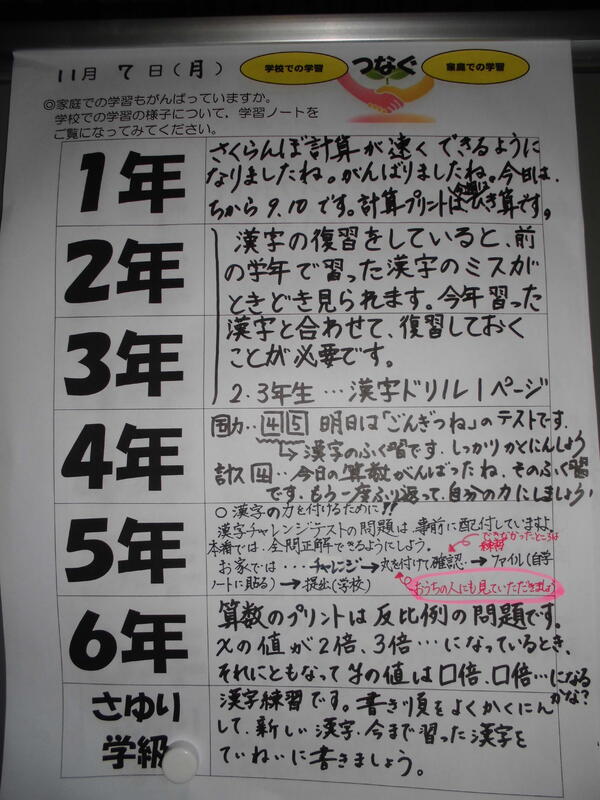 11月 7日(月)
学校での学習
つなぐ
家庭での学習
◎家庭での学習もがんばっていますか。
学校での学習の様子について、学習ノートを
ご覧になってみてください。
1年
さくらんぼ計算が速くできるように
なりましたね。がんばりましたね。今日は、
ちから9.10です。計算プリントはひき算です。
2年
漢字の復習をしていると、前
の学年で習った漢字のミスが
ときどき見られます。今年習った
3年
漢字と合わせて、復習しておく
ことが必要です。
2・3年生…漢字ドリル1ページ
4年
国力‥④⑤ 明日は「ごんぎつね」のテストです。
→漢字のふく習です。しっかりかくにんしよう
計ス⑭‥今日の算数がんばったね。そのふく習
です。もう一度ふり返って、自分の力にしましょう!
5年
○漢字の力を付けるために!!
漢字チャレンジテストの問題は、事前に配付していますよ。
できなかったところは
練習
本番では、全問正解できるようにしよう。
お家では・・・チャレンジ→丸を付けて確認→ファイル(自学
ノートに貼る)→提出(学校)
おうちの人にも見ていただきましょう
6年
算数のプリントは反比例の問題です。
xの値が2倍、3倍…になっているとき、
それにともなってyの値は□倍、□倍…になる
かな?
さゆり
学級
漢字練習です。書き順をよくかくにん
して、新しい漢字、今まで習った漢字を
ていねいに書きましょう。